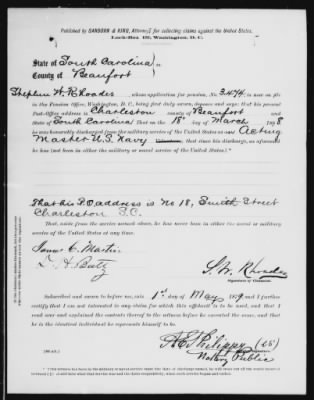 Published by SANBORN & KING, Attorneys for collecting claims against the United States.
Lock-Box 192, Washington, D. C.
State of South Carolina
County of Beaufort
Stephen W. Rhoades, whose application for pension, No. 3474 is now on file
in the Pension Office, Washington, D. C., being first duly sworn, deposes and says: that his present
Post-office address is Charleston county of Beaufort and
State of South Carolina that on the 18" day of March 1868
he was honorably discharged from the military service of the United States as an Acting
Master U.S. Navy that, since his discharge, as aforesaid,
he has not been in either the military or naval service of the United States.
That his P.O. address is No 18, Smith Street
Charleston S.C.
That, aside from the service noted above, he has never been in either the naval or military
service of the United States at any time.
Isaac C. Martin
S. W. Rhoades
Signature of Claimant.
Subscribed and sworn to before me, this 1st day of May 1879 and I further
certify that I am not interested in any claim for which this affidavit is to be used, and that I
read over and explained the contents thereof to the witness before he executed the same, and that
he is the identical individual he represents himself to be.
Philippy (LS)
Notary Public